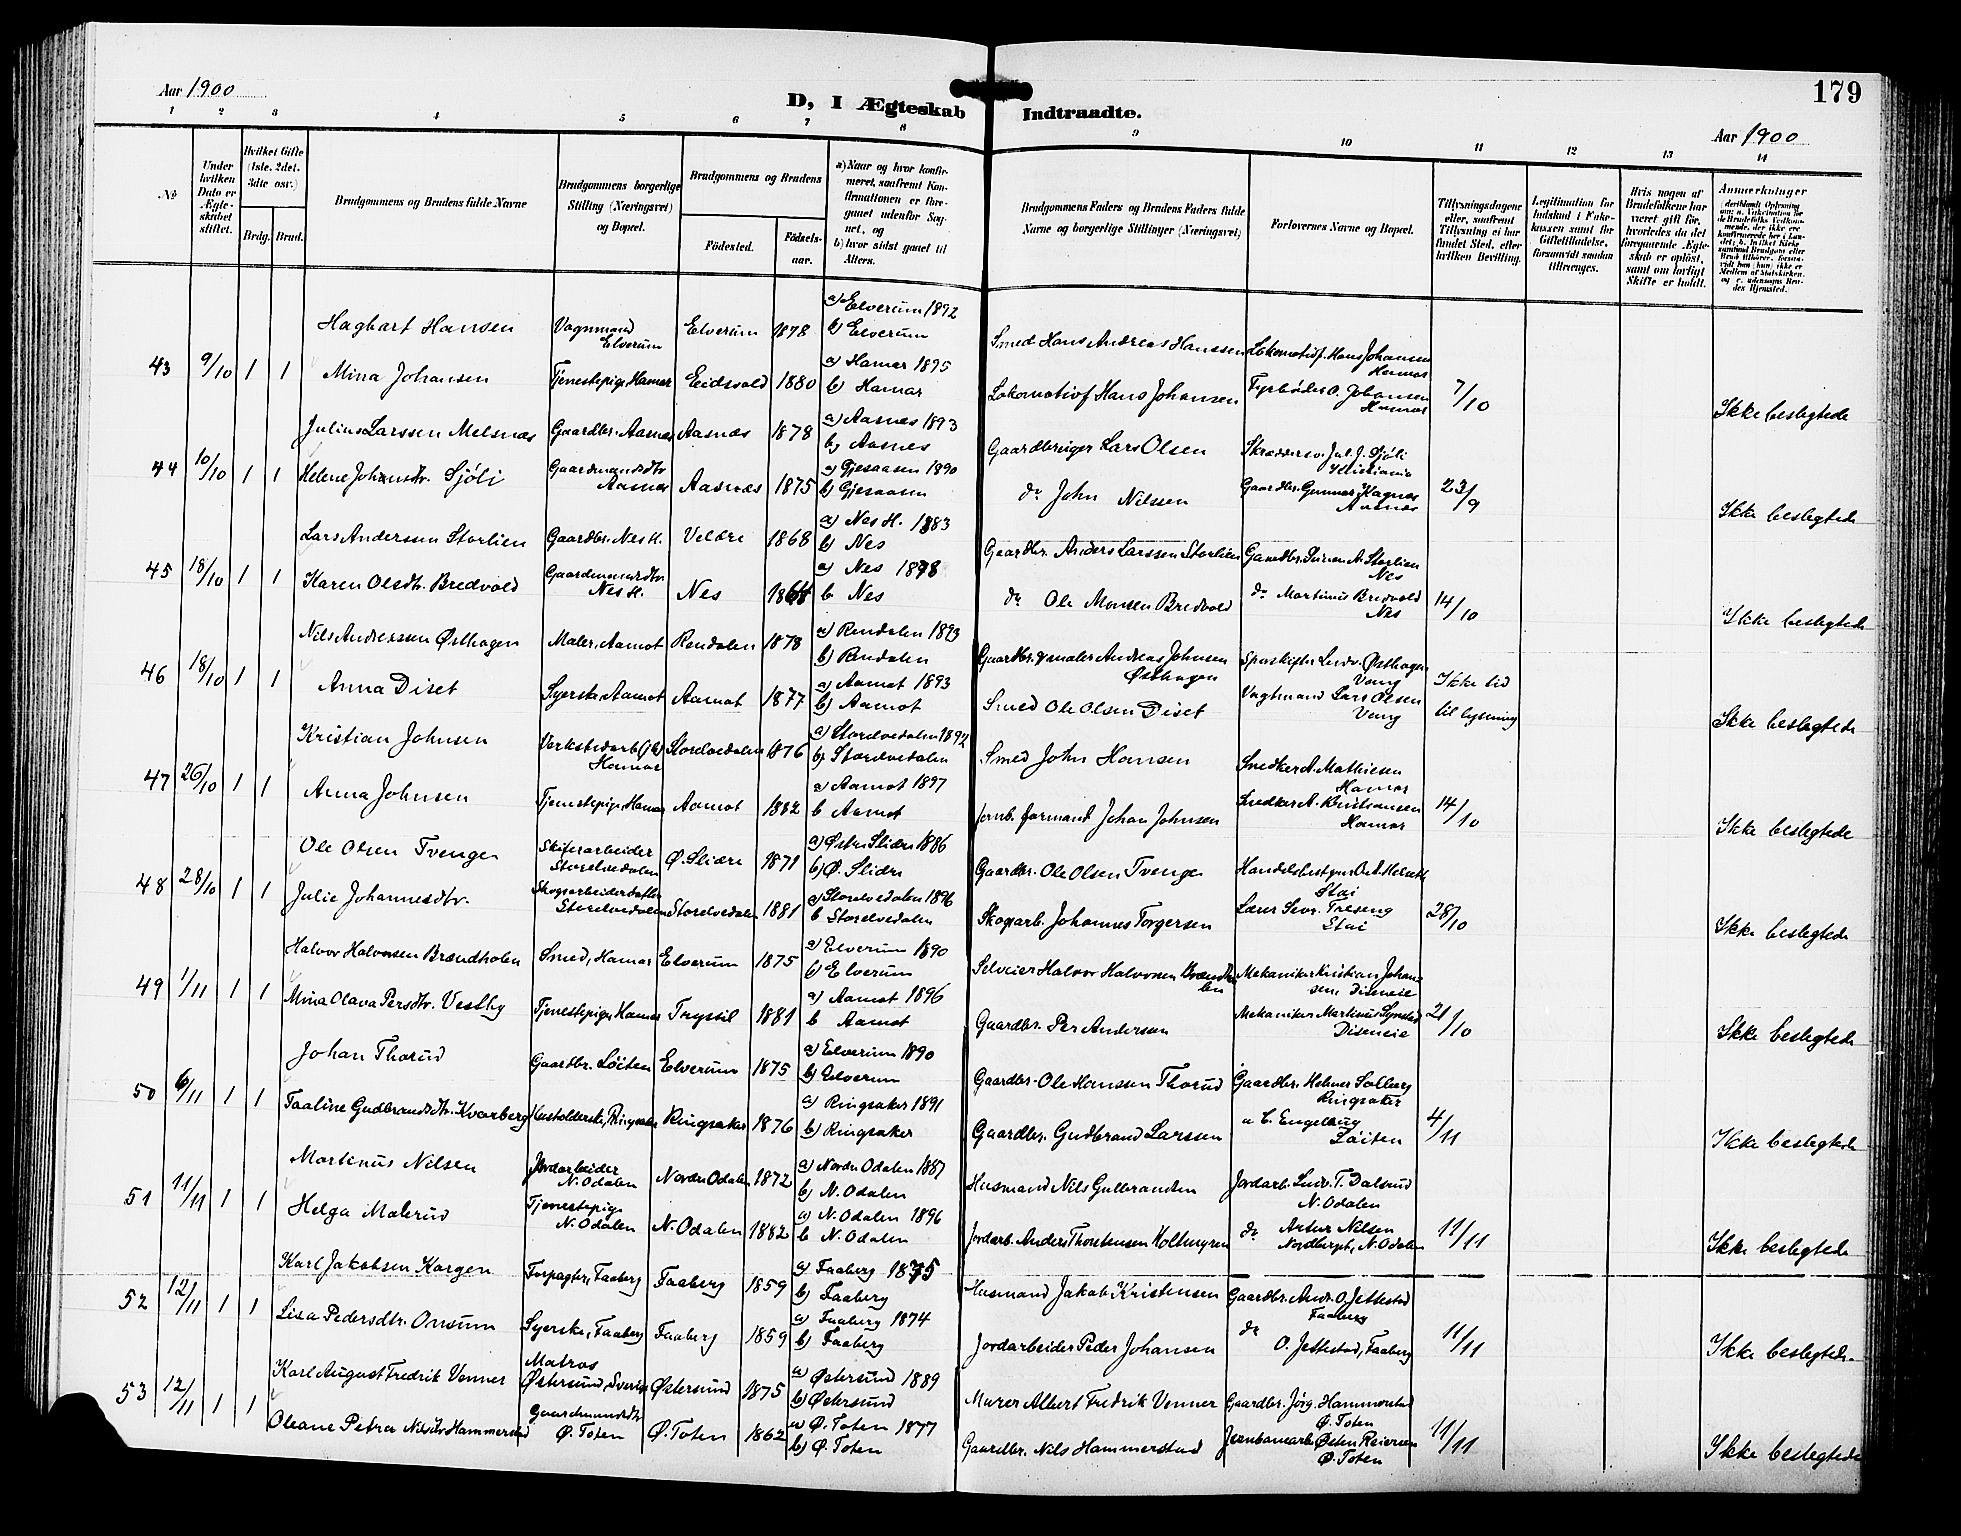 Aar 1900
D, I Ægteskab Indtraadte.
179
Aar 1900
1 2 3 4 5 6 7 8 9 10 11 12 13 14
No
Under hvilken Dato er Ægteskabet stiftet.
Hvilket Gifte (1ste, 2det, 3dte osv.)
Brdg. Brud.
Brudgommens og Brudens fulde Navne
Brudgommens borgerlige Stilling (Næringsvei) og Bopæl.
Brudgommens og Brudens
Fødested.
Fødselsaar.
a) Naar og hvor konfirmeret, saafremt Konfirmationen er foregaaet udenfor Sognet, og
b) hvor sidst gaaet til Alters.
Brudgommens Faders og Brudens Faders fulde Navne og borgerlige Stillinger (Næringsvei)
Forlovernes Navne og Bopæl.
Tillysningsdagene eller, saafremt Tillysning ei har fundet Sted, efter hvilken Bevilling.
Legitimation for Indskud i Enkekassen samt for Giftetilladelse, forsaavidt saadan tiltrænges.
Hvis nogen af Brudefolkene har været gift før, hvorledes da det foregaaende Ægteskab er opløst, samt om lovligt Skifte er holdt.
Anmærkninger
43 9/10 1 1
Hagbart Hansen Vognmand Elverum Elverum 1878 a) Elverum 1892 b) Elverum Smed Hans Andreas Hanssen Lokomotivf. Hans Johansen Hamar
Mina Johansen Tjenestepige Hamar Eidsvold 1880 a) Hamar 1895 b) Hamar Lokomotivf Hans Johansen Fyrbøder O. Johansen Hamar 7/10 Ikke beslegtede
44 10/10 1 1
Julius Larssen Melsnæs Gaardbr. Aasnæs Aasnæs 1878 a) Aasnæs 1893 b) Aasnes Gaardbruger Lars Olsen Skræddersv. Jul. J. Sjøli Kristiania
Helene Johnsdtr. Sjöli Gaardmandsdtr Aasnæs Aasnæs 1875 a) Gjesaasen 1890 b) Gjesaasen do John Nilssen Gaardbr. Gunnar Aasnæs 23/9 Ikke beslegtede
45 18/10 1 1
Lars Anderssen Storlien Gaardbr. Nes H. Veldre 1868 a) Nes H. 1883 b) Nes Gaardbr. Anders Larssen Storlien Gaardbr. A. Storlien Nes
Karen Olsdtr. Bredvold Gaardmandsdtr Nes H. Nes a) Nes 1878 b Nes do Ole Monsen Bredvold do Martinus Bredvold Nes 14/10 Ikke beslegtede
46 18/10 1 1
Nils Andreassen Østhagen Maler, Aamot Rendalen 1878 a) Rendalen 1893 b) Rendalen Gaardbr. & maler Andreas Johnsen Østhagen Sporskifter Ludv. Østhagen Vang
Anna Diset Syerske Aamot Aamot 1877 a) Aamot 1893 b) Aamot Smed Ole Olsen Diset Vogtmand Lars Olsen Vang Ikke tid til lysning Ikke beslegtede
47 26/10 1 1
Kristian Johnsen Verkstedarb. Hamar Storelvedalen 1876 a) Storelvedalen 1892 b) Storelvedalen Smed John Hansen Snedker A. Mathiesen Hamar
Anna Johnsen Tjenestepige Hamar Aamot 1882 a) Aamot 1897 b Aamot Jernb. formand Johan Johnsen Snedker A. Kristiansen Hamar 14/10 Ikke beslegtede
48 28/10 1 1
Ole Olsen Tvenge Skiferarbeider Storelvedalen Ø. Slidre 1871 a) Østre Slidre 1886 b) Ø. Slidre Gaardbr. Ole Olsen Tvenge Handelsbestyrer Stai
Julie Johannesdtr. Skogsarbeiderdatter Storelvedalen Storelvedalen 1881 a) Storelvedalen 1896 b Storelvedalen Skogsarb. Johannes Torgersen Lærer Sevr. Treseng Stai 28/10 Ikke beslegtede
49 1/11 1 1
Halvor Halvorsen Brændholen Smed, Hamar Elverum 1875 a) Elverum 1890 b) Elverum Selveier Halvor Halvorsen Brændholen Mekaniker Kristian Johansen, Diseneie
Mina Olava Persdtr. Vestby Tjenestepige Hamar Trysil 1881 a) Aamot 1896 b Aamot Gaardbr. Per Andersen Mekaniker Martinus Diseneie 21/10 Ikke beslegtede
50 6/11 1 1
Johan Thorud Gaardbr. Løiten Elverum 1875 a) Elverum 1890 b) Elverum Gaardbr. Ole Hanssen Thorud Gaardbr. Helmer Solberg Ringsaker
Taaline Gudbrandsdtr. Kvarberg Husholderske, Ringsaker Ringsaker 1876 a) Ringsaker 1891 b) Ringsaker Gaardbr. Gudbrand Larssen " C. Engelhaug Løiten 4/11 Ikke beslegtede
51 11/11 1 1
Martinus Nilsen Jordarbeider N. Odalen Nordre Odalen 1872 a) Nordre Odalen 1887 b) N. Odalen Husmand Nils Gulbrandsen Jordarb. Ludv. T. Dalsrud N. Odalen
Helga Malerud Tjenestepige N. Odalen N. Odalen 1882 a) N. Odalen 1896 b N. Odalen Jordarb. Anders Thorstensen Holtengren do Artur Nilsen Nordberget, N. Odalen 11/11 Ikke beslegtede
52 12/11 1 1
Karl Jakobsen Korgen Forpagter, Faaberg Faaberg 1859 a) Faaberg 1875 b) Faaberg Husmand Jakob Kristensen Gaardbr. Andr. O. Jettestad Faaberg
Lisa Pedersdtr. Onsum Syerske, Faaberg Faaberg 1859 a) Faaberg 1874 b) Faaberg Jordarbeider Peder Johansen do O. Jettestad, Faaberg 11/11 Ikke beslegtede
53 12/11 1 1
Karl August Fredrik Venner Matros Østersund, Sverige Østersund 1875 a) Østersund 1889 b) Østersund Murer Albert Fredrik Venner Gaardbr. Jørg. Hammerstad Ø. Toten
Oleane Petra Nilsdtr Hammerstad Gaardmandsdtr Ø. Toten Ø. Toten 1862 a) Ø. Toten 1877 b) Ø. Toten Gaardbr. Nils Hammerstad Jernbanearb. Østen Reiersen Ø. Toten 11/11 Ikke beslegtede